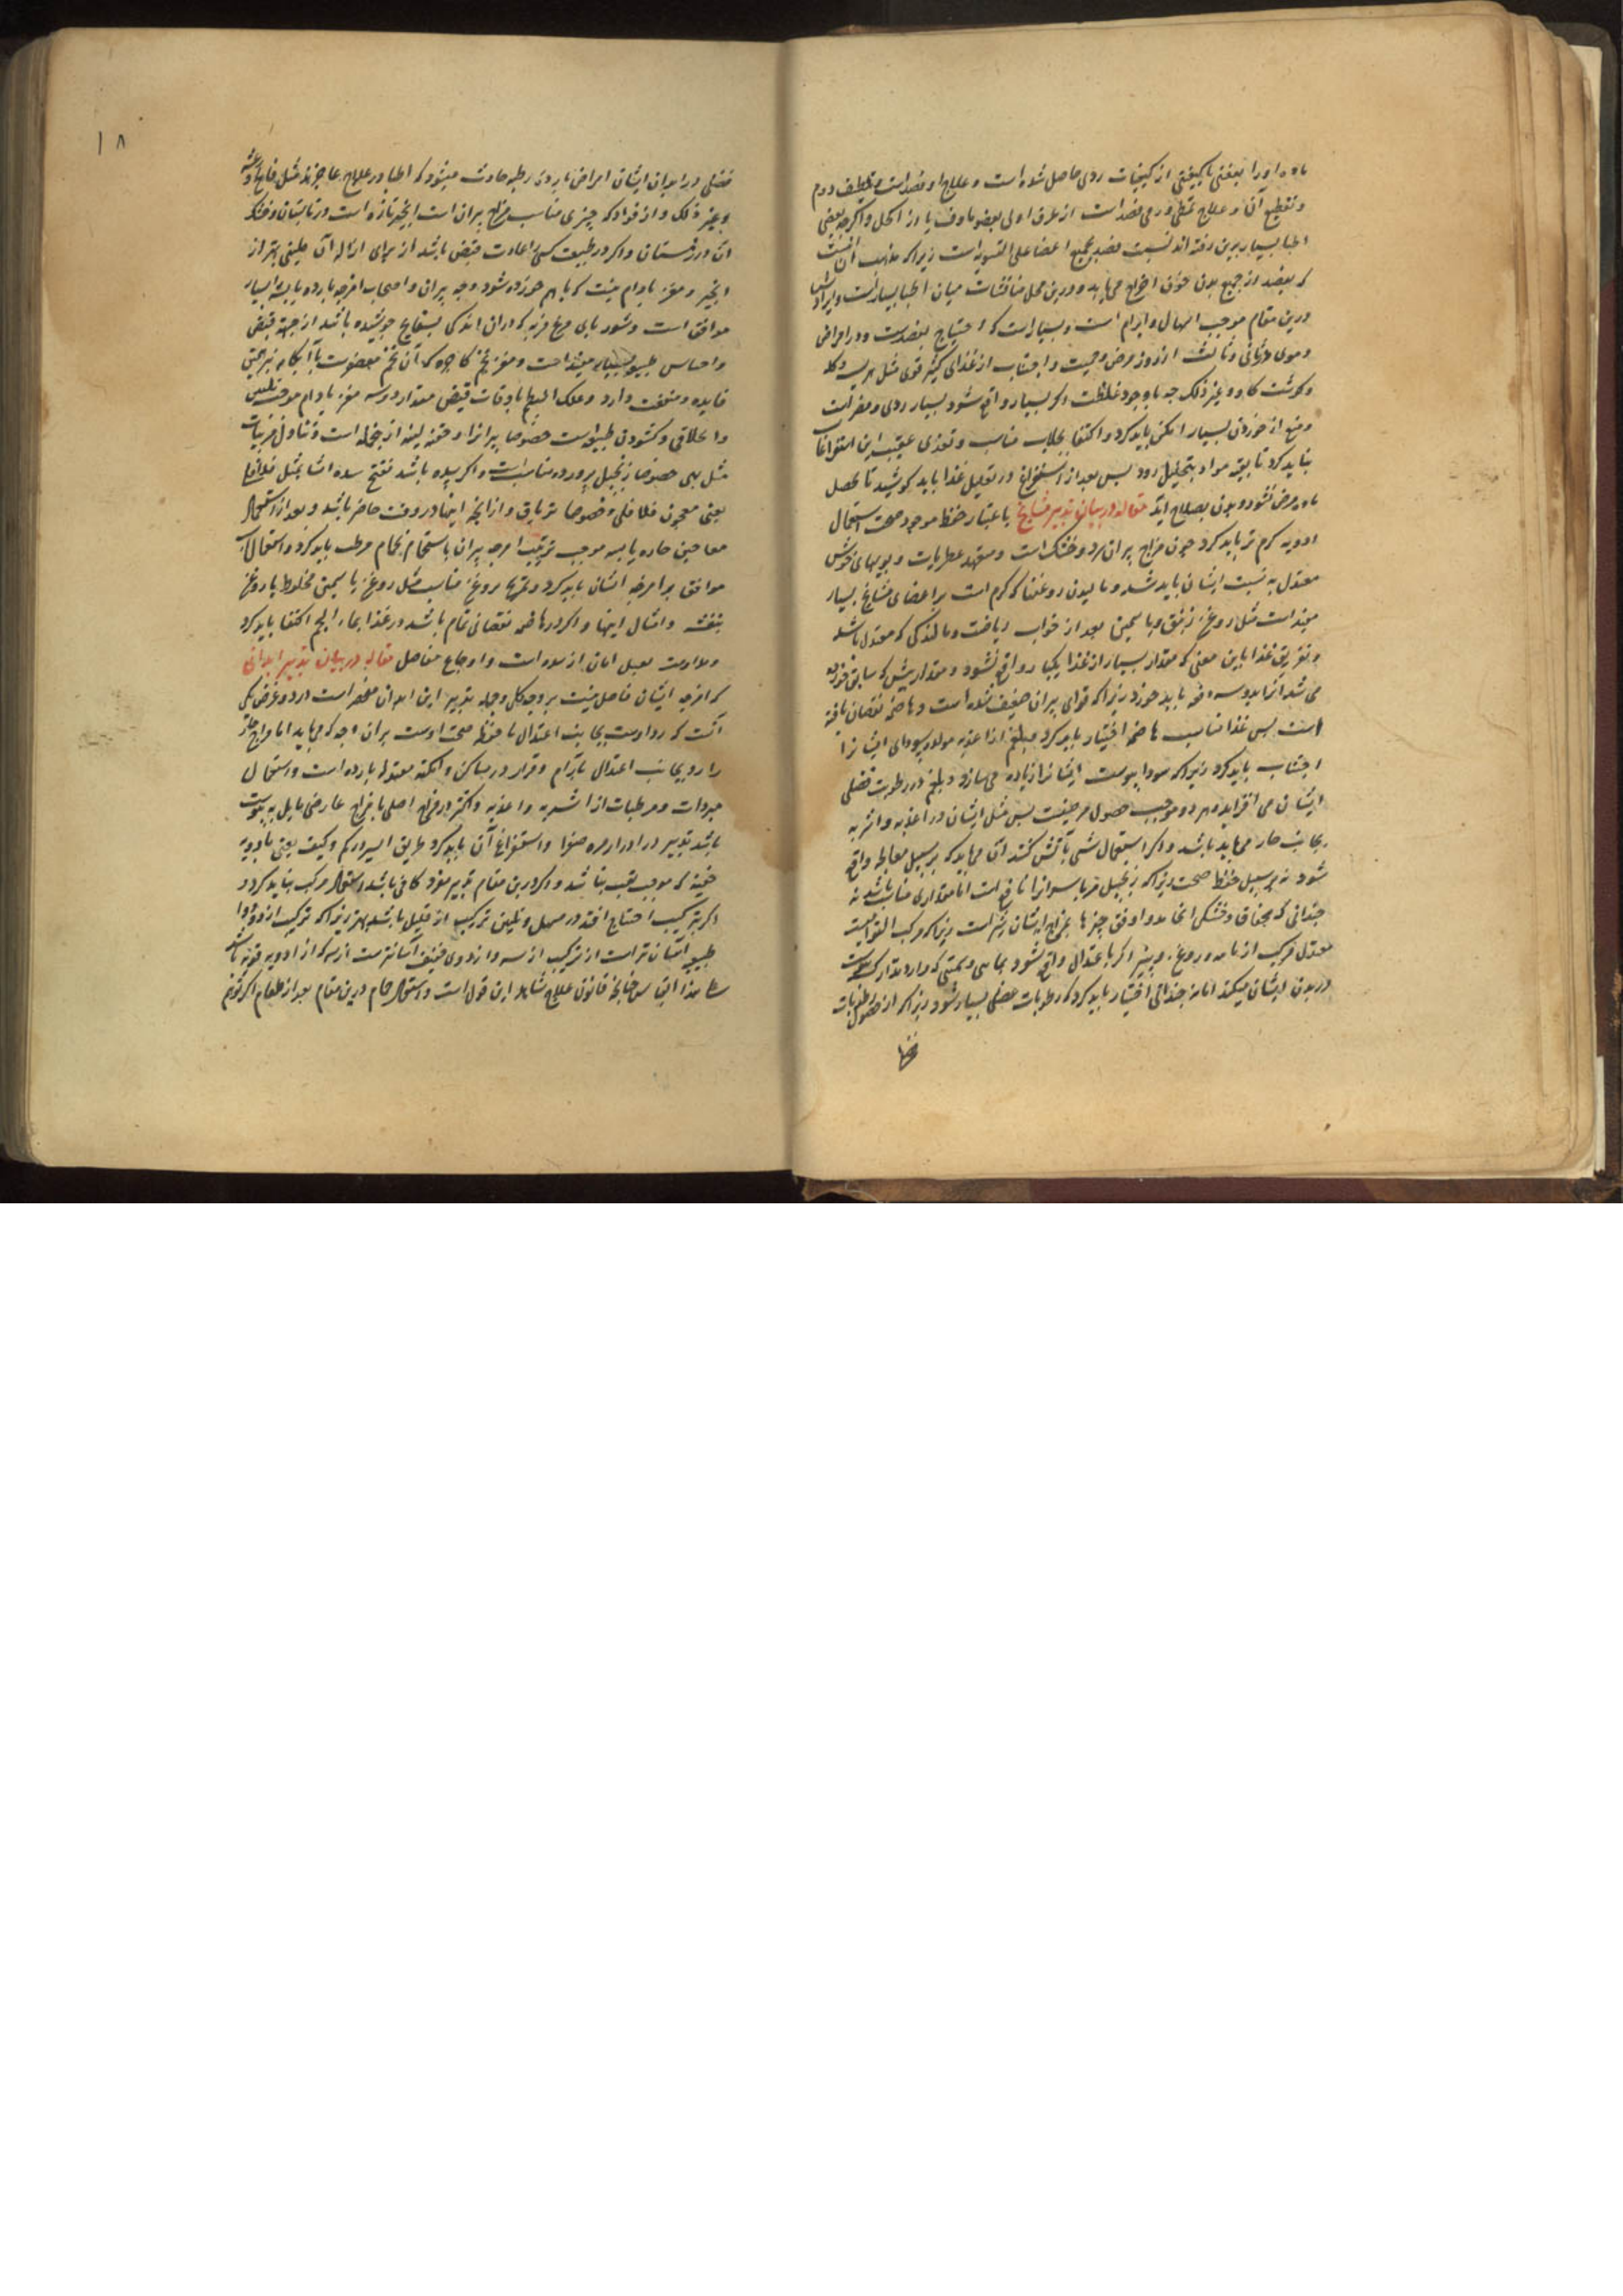 ماده او را بعفنی یا کیفیتی از کیفیات ردی حاصل شده است و علاج او فصد است و تلطیف دوم
و تقطیع آن و علاج فصد است از طرف اولی بعضو ماوف یا از اکحل و اکرچه بعضی
اطبا بسیار برین رفته‌اند نسبت فصد بجمیع اعضا علی السویه است زیرا که مذهب آن نیست
که بفصد از جمیع بدن خون اخراج می یابد و درین محل مناقشات میان اطبا بسیار است و ایراد
درین مقام موجب اسهال و ابرام است و بسیار است که احتیاج بفصدست و در امراض
دموی در ثانی و ثالث از روز مرض و حمیت و اجتناب از غذای کثیر قوی مثل هریسه و کله
و کوشت کاو و غیر ذلک چه با وجود غلظت اکر بسیار واقع شود بسیار ردی و مضر است
و منع از خوردن بسیار امکن باید کرد و اکتفا بجلاب مناسب و تغذی عقیب این استفراغات
نباید کرد تا بقیه مواد بتحلیل رود پس بعد از استفراغ در تقلیل غذا باید کوشید تا محصل
ماده مرض نشود و بدن بصلاح آید مقاله در بیان تدبیر مشایخ باعتبار حفظ موجود صحت استعمال
ادویه کرم تر باید کرد چون مزاج پیران سرد و خشک است و متعهد عطریات و بویهای خوش
معتدل به نسبت ایشان باید شد و مالیدن روغنها که کرم است بر اعضای مشایخ بسیار
مفید است مثل روغن زنبق و یاسمین بعد از خواب ریاضت و مالندکی که معتدل باشد
و تفریق غذا باین معنی که مقدار بسیار از غذا یکبار واقع نشود و مقدار پیش که سابق خورده
می شد آنرا بدو سه دفعه باید خورد زیرا که قوای پیران ضعیف شده است و هاضمه نقصان یافته
است پس غذا مناسب هاضمه اختیار باید کرد و از اغذیه مولد سودای ایشانرا
اجتناب باید کرد زیرا که سودا یبوست ایشانرا زیاده می سازد و بلغم در رطوبت فضلی
ایشان می افزاید و هر دو موجب حصول مرضیت پس مثل ایشان در اغذیه و اشربه
بجانب حار می باید باشد و اکر استعمال شی بآتش کنند آن می باید که بر سبیل معالجه واقع
شود نه بر سبیل حفظ صحت زیرا که زنجبیل مربا سود آنرا نافع است اما مقداری مناسب باشد نه
چندانی که بجفاف و خشکی انجامد و اوفق چیزها بمزاج ایشان شیر است زیرا که مرکب القواست
معتدل مرکب از مائیه و روغن و پنیر اکر باعتدال واقع شود بخاصیتی که دارد تدارک یبوست
در بدن ایشان میکند اما نه چندانی اختیار باید کرد که رطوبات فضلی بسیار شود زیرا که از حصول رطوبات
فضلی در ابدان ایشان امراض بارده رطبه حادث میشود که اطبا در علاج عاجزند مثل فالج و رعشه
و غیر ذلک و از فواکه چیزی مناسب مزاج پیران است انجیر تازه است در تابستان و خشک
آن در زمستان و اکر در طبیعت کسی را عادت قبض باشد از برای ازاله آن ملینی بهتر از
انجیر و مغز بادام نیست که باهم خورده شود و جه پیران و اصحاب امزجه بارده یابسه را بسیار
موافق است و شوربای مرغ فربه که در آن اندکی بسفایج جوشیده باشد از جهة قبض
و احتباس طبیعت بسیار مفید است و مغز تخم کاجیره که آن تخم معصفرست با آبکامه نیز همین
فایده و منفعت دارد و علک البطم باوقات قبض مقدار دو سه مغز بادام موجب تلیین
و اطلاق و کشودن طبیعت است خصوصا پیرانرا و حقنه لینه از جمله است و تناول مربیات
مثل بهی خصوصا زنجبیل پرورده مناسب است و اکر سده باشد تفتیح سده ایشان بمثل فلافلی
یعنی معجون فلافلی و خصوصا تریاق و از آنچه اینها در وقت حاضر باشد و بعد از استعمال
معاجین حاره یابسه موجب ترتیب امزجه پیران باستحمام بحمام مرطب باید کرد و استعمال
موافق بر امزجه ایشان باید کرد و تمریخ بروغن مناسب مثل روغن یاسمین مخلوط با روغن
بنفشه و امثال اینها و اکر در هاضمه نقصانی تمام باشد در غذا بماء اللحم اکتفا باید کرد
و مداومت بعسل امان از سده است و اوجاع مفاصل مقاله در بیان تدبیر ابدانی
که امزجه ایشان فاضل نیست بر وجه کلی و جمله تدبیر این ابدان منحصر است در دو غرض یکی
آنست که رد اوست بجانب اعتدال تا حفظ صحت اوست بر آن وجه که می باید اما مزاج حار
را رد بجانب اعتدال بآرام و قرار در مساکن و امکنه معتدله بارده است و استعمال
مبردات و مرطبات از اشربه و اغذیه و اکثر در مزاج اصلی یا مزاج عارضی مایل به یبوست
باشد تدبیر در ادرار مره صفرا و استفراغ آن باید کرد بطریق ایسر در کم و کیف یعنی بادویه
خفیفه که موجب تعب نباشد و اکر درین مقام تدبیر مفرد کافی باشد استعمال مرکب نباید کرد و
اکر بترکیب احتیاج افتد در مسهل و ملین ترکیب از قلیل باشد بهتر زیرا که ترکیب از دو دوا
طبیعت آسان‌تر است از ترکیب از سه و از دوی ضعیف آسانترست از سه که از ادویه قویه باشد
علی هذا القیاس چنانچه قانون علاج شاهد این قول است و استعمال حمام درین مقام بعد از طعام اکر توهم